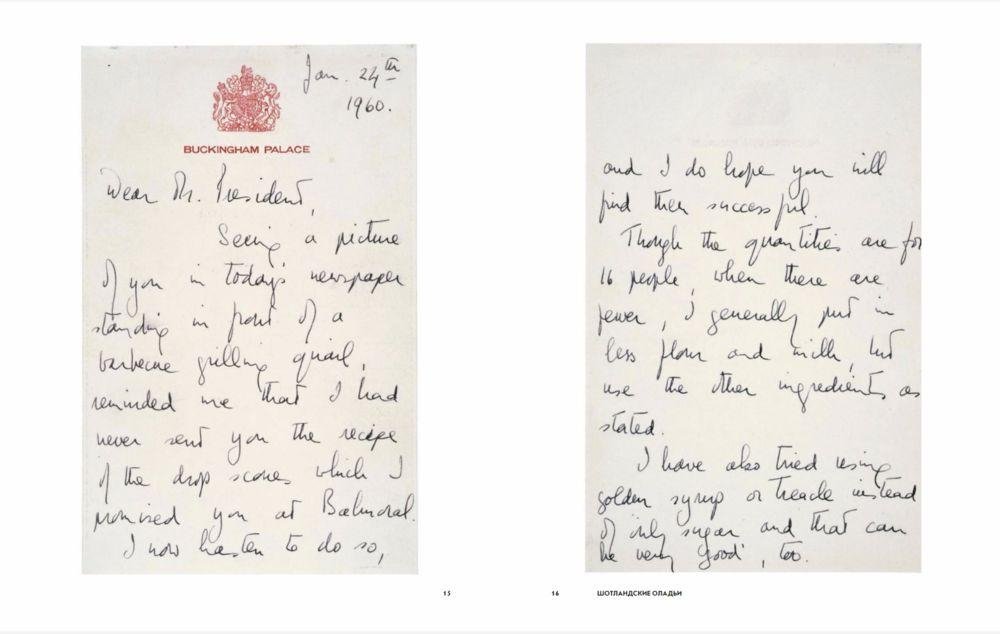 Jan. 24th
1960.
BUCKINGHAM PALACE
Dear Mr. President,
Seeing a picture
of you in today's newspaper
standing in front of a
barbecue grilling quail,
reminded me that I had
never sent you the recipe
of the drop scones which I
promised you at Balmoral.
I now hasten to do so,
and I do hope you will
find them successful.
Though the quantities are for
16 people, when there are
fewer, I generally put in
less flour and milk, but
use the other ingredients as
stated.
I have also tried using
golden syrup or treacle instead
of only sugar and that can
be very good, too.
15
16 ШОТЛАНДСКИЕ ОЛАДЬИ